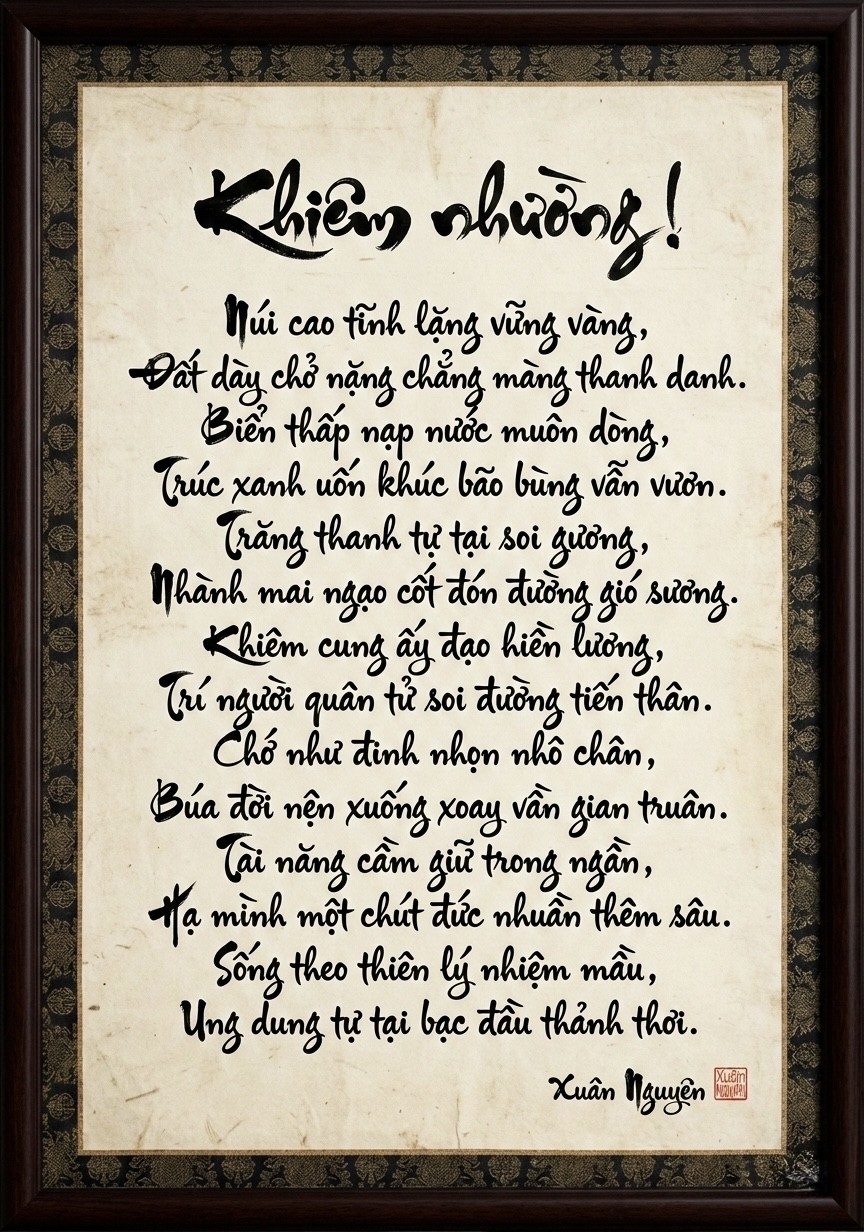 Khiêm nhường!
Núi cao tĩnh lặng vững vàng,
Đất dày chở nặng chẳng màng thanh danh.
Biển thấp nạp nước muôn dòng,
Trúc xanh uốn khúc bão bùng vẫn vươn.
Trăng thanh tự tại soi gương,
Nhành mai ngạo cốt đón đường gió sương.
Khiêm cung ấy đạo hiền lương,
Trí người quân tử soi đường tiến thân.
Chớ như đinh nhọn nhô chân,
Búa đời nện xuống xoay vần gian truân.
Tài năng cầm giữ trong ngần,
Hạ mình một chút đức nhuần thêm sâu.
Sống theo thiên lý nhiệm mầu,
Ung dung tự tại bạc đầu thảnh thơi.
Xuân Nguyên